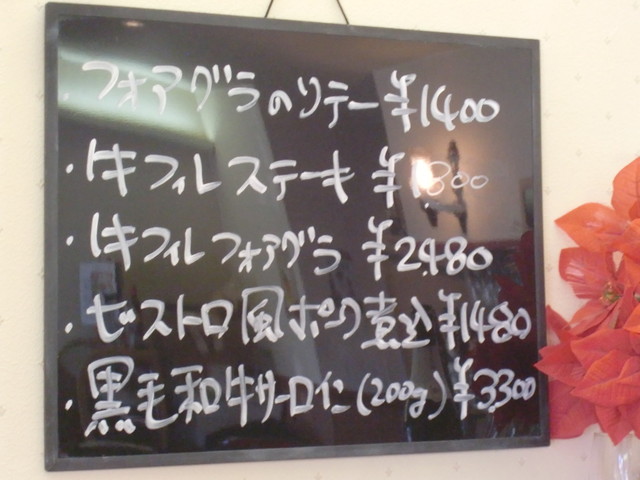 ・フォアグラのソテー ¥1400
・牛フィレステーキ ¥1800
・牛フィレフォアグラ ¥2480
・ビストロ風ポーク煮込 ¥1480
・黒毛和牛サーロイン(200g) ¥3300